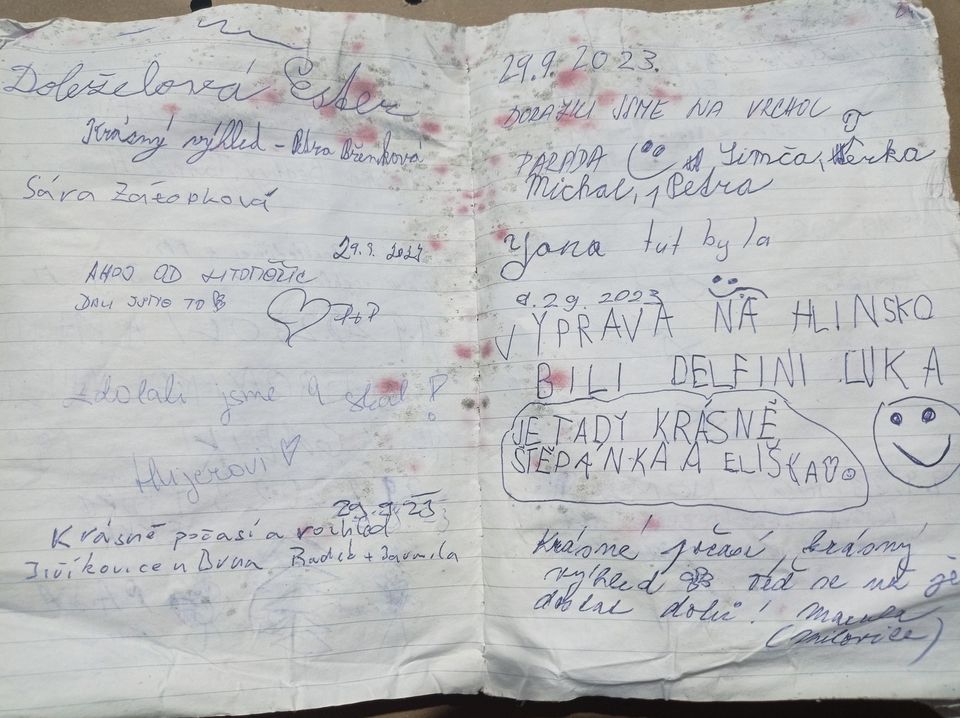 Doleželová Ester
Krásný výhled - Petra Břenková
Sára Zátopková
29.9. 2023
AHOJ OD LITOMĚŘIC
DALI JSME TO
P+P
zdolali jsme 9 skal!
Hujerovi
29.9.23
Krásné počasí a rozhled
Jiříkovice u Brna Radek + Jarmila
29.9.2023.
DORAZILI JSME NA VRCHOL
PARÁDA Simča, Terka
Michal, Petra
Yana tut byla
9.29.2023
VÝPRAVA NA HLINSKO
BILI DELFINI LUKA
JE TADY KRÁSNĚ
ŠTĚPÁNKA A ELIŠKA
Krásné počasí, krásný
výhled teď se ně je
dostat dolů!
(Milovice)